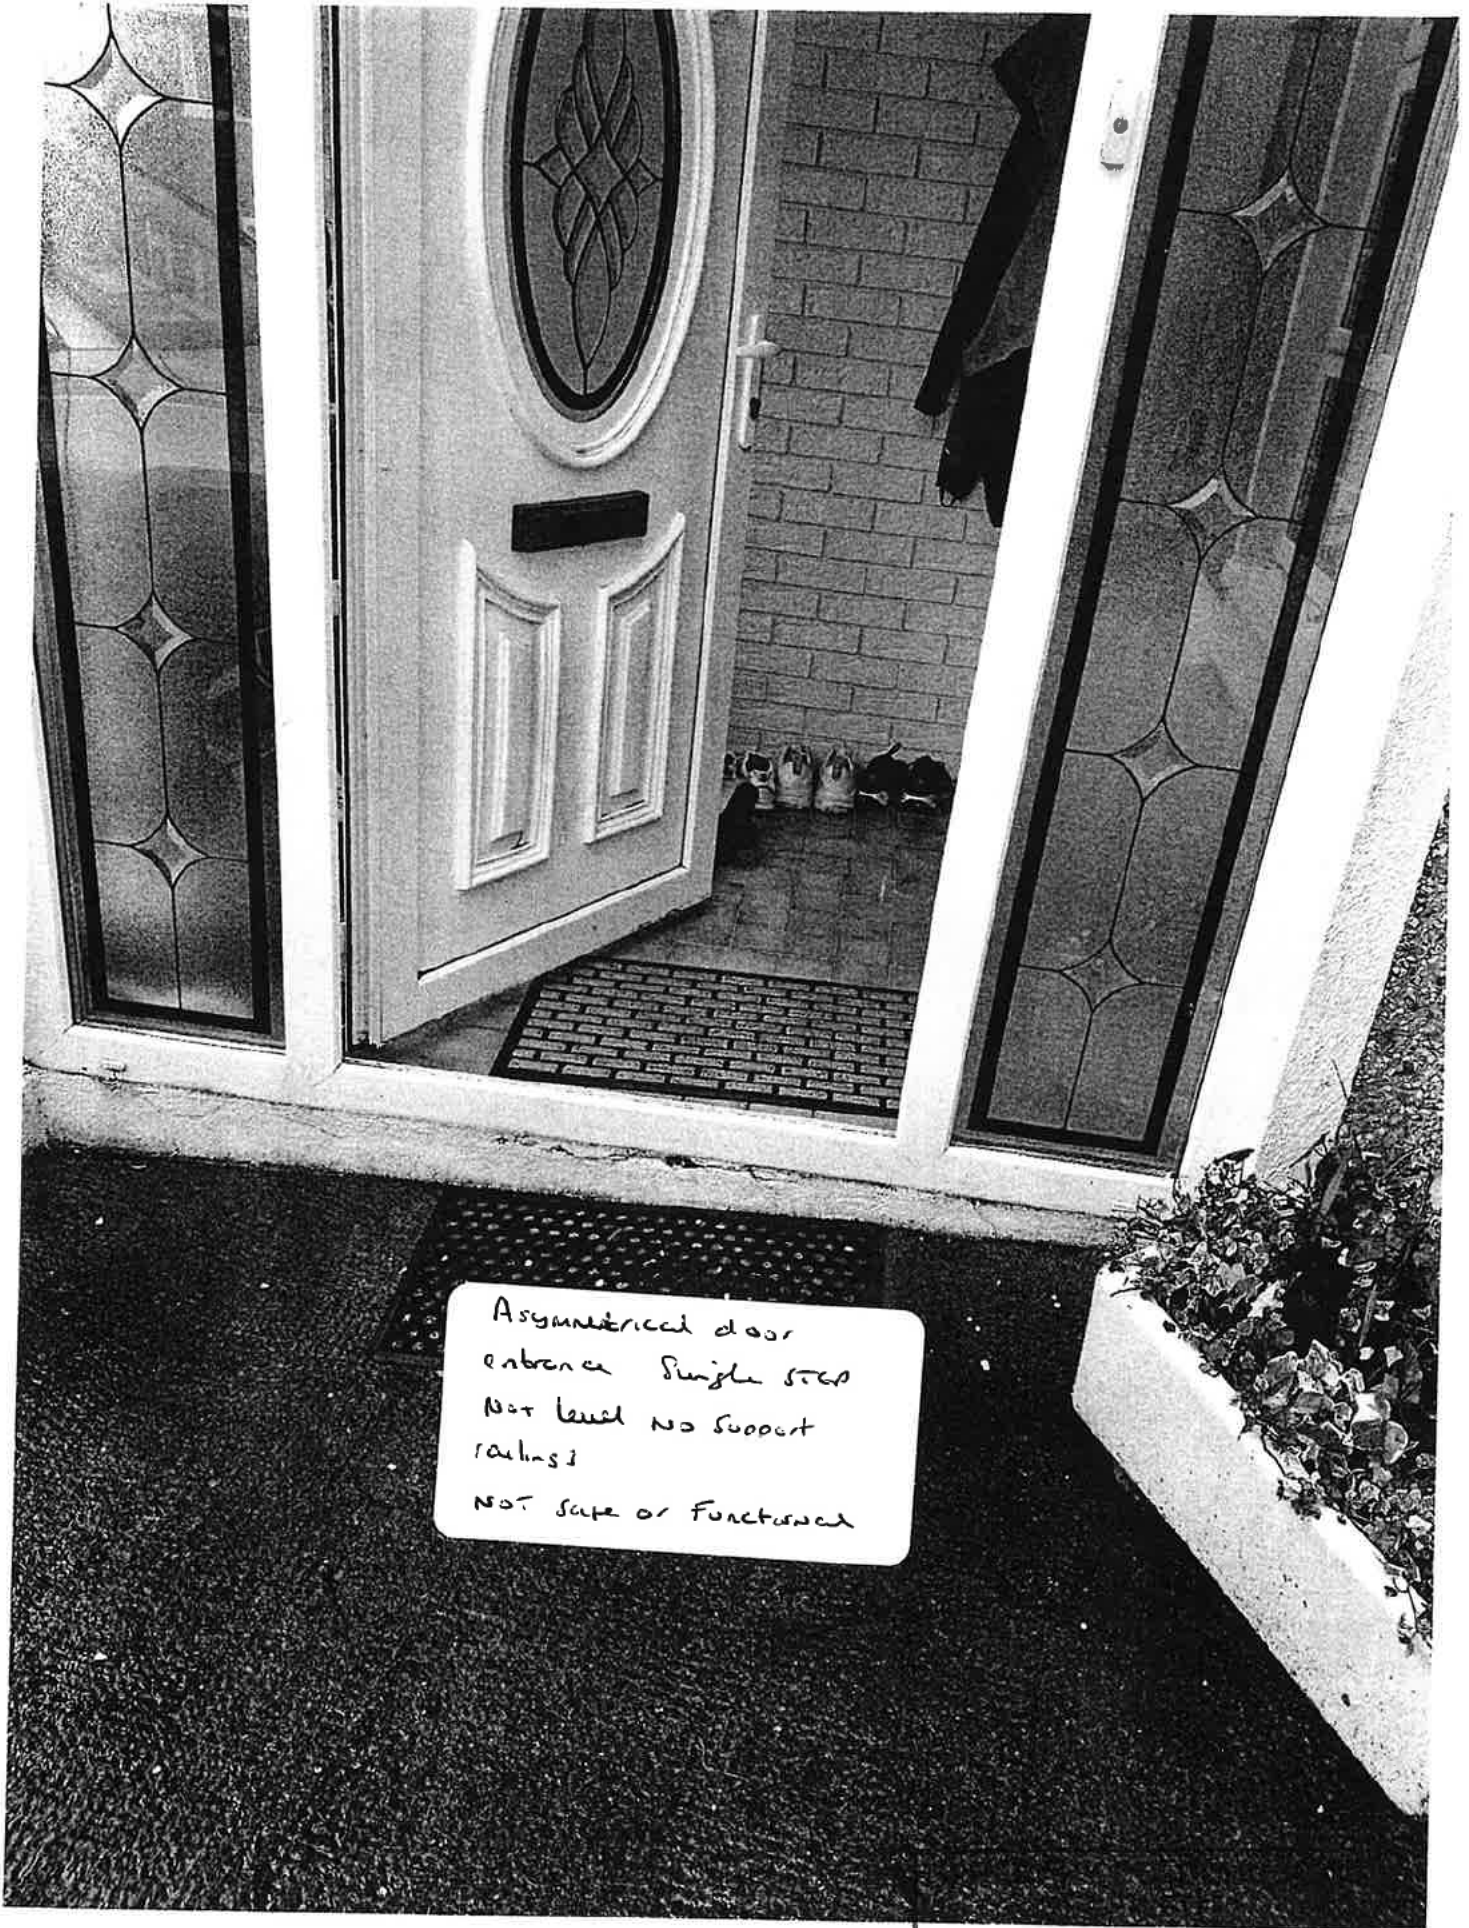 Asymmetrical door
entrance Single STEP
Not Level No Support
railings
NOT safe or Functional